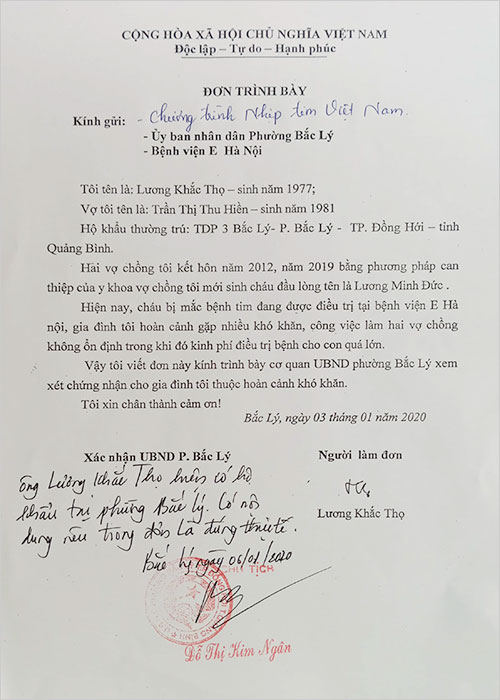 CỘNG HÒA XÃ HỘI CHỦ NGHĨA VIỆT NAM
Độc lập – Tự do – Hạnh phúc
ĐƠN TRÌNH BÀY
Kính gửi: - Chương trình Nhịp tim Việt Nam.
- Ủy ban nhân dân Phường Bắc Lý
- Bệnh viện E Hà Nội
Tôi tên là: Lương Khắc Thọ – sinh năm 1977;
Vợ tôi tên là: Trần Thị Thu Hiền – sinh năm 1981
Hộ khẩu thường trú: TDP 3 Bắc Lý- P. Bắc Lý - TP. Đồng Hới – tỉnh
Quảng Bình.
Hai vợ chồng tôi kết hôn năm 2012, năm 2019 bằng phương pháp can
thiệp của y khoa vợ chồng tôi mới sinh cháu đầu lòng tên là Lương Minh Đức .
Hiện nay, cháu bị mắc bệnh tim đang được điều trị tại bệnh viện E Hà
nội, gia đình tôi hoàn cảnh gặp nhiều khó khăn, công việc làm hai vợ chồng
không ổn định trong khi đó kinh phí điều trị bệnh cho con quá lớn.
Vậy tôi viết đơn này kính trình bày cơ quan UBND phường Bắc Lý xem
xét chứng nhận cho gia đình tôi thuộc hoàn cảnh khó khăn.
Tôi xin chân thành cảm ơn!
Bắc Lý, ngày 03 tháng 01 năm 2020
Xác nhận UBND P. Bắc Lý
Người làm đơn
Ông Lương Khắc Thọ hiện có hộ
khẩu tại phường Bắc Lý. Có nội
dung nêu trong đơn là đúng thực tế.
Bắc Lý ngày 06/01/2020
Lương Khắc Thọ
CHỦ TỊCH
Đỗ Thị Kim Ngân